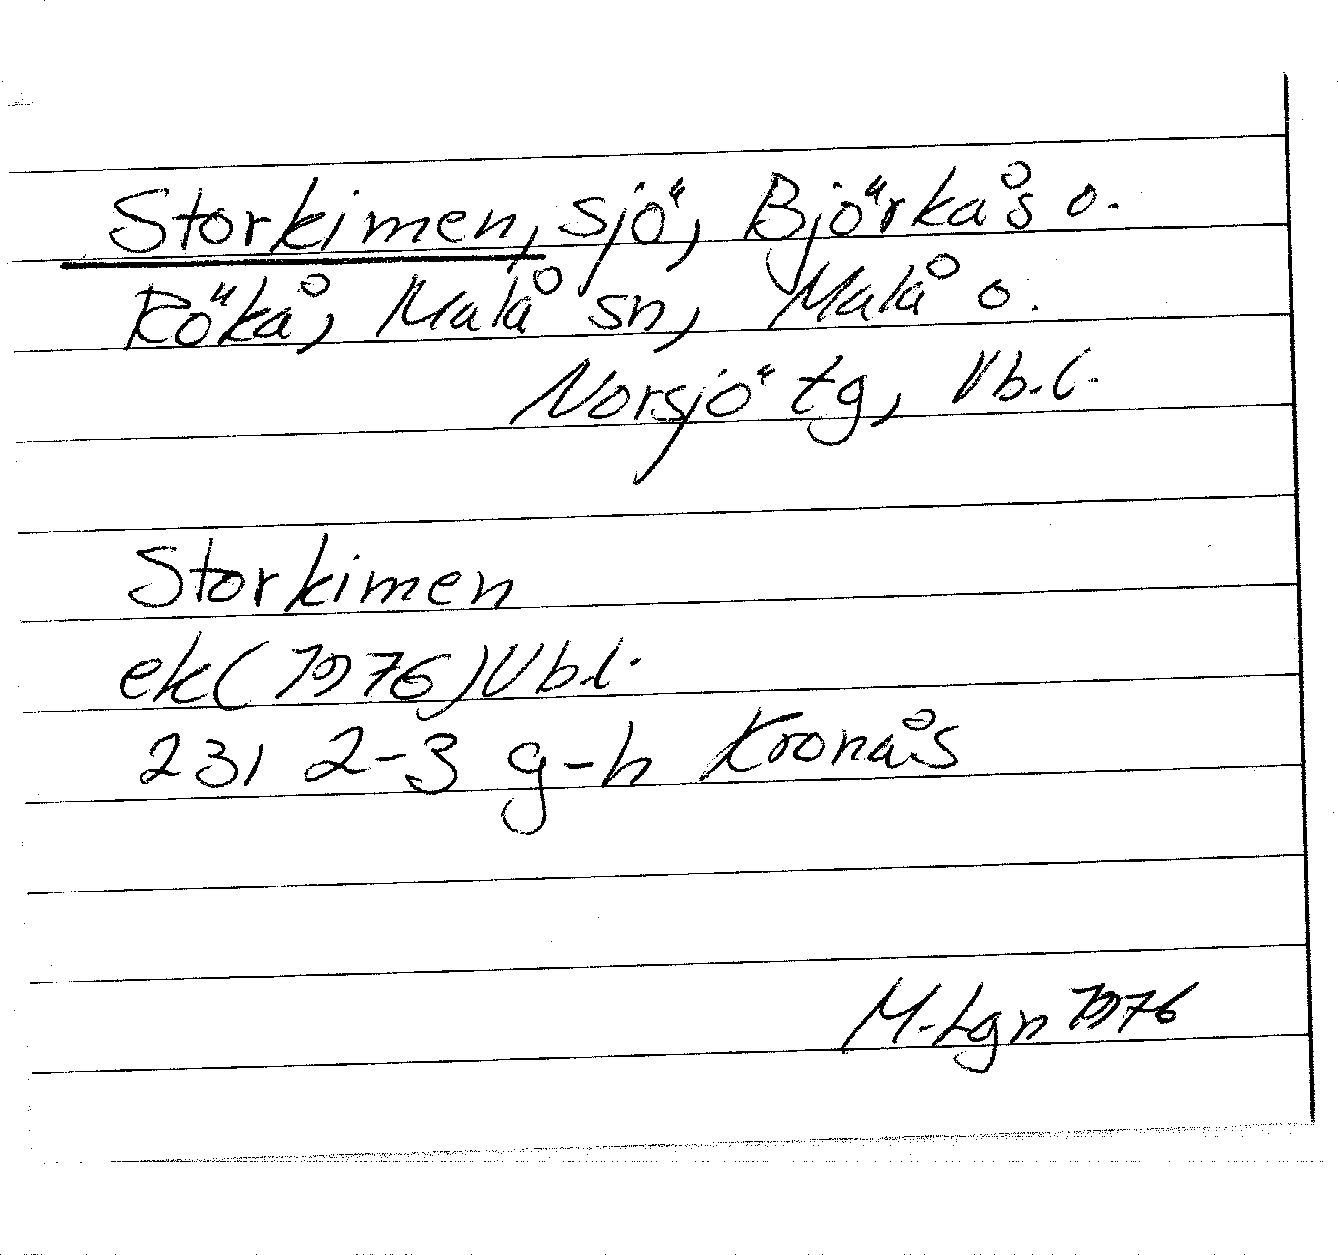 Storkimen, sjö, Björkås o.
Rökå, Malå sn, Malå o.
Norsjö tg, Vb.l.
Storkimen
ek(1976)Vb.l.
231 2-3 g-h Kronås
M-Lgn 1976